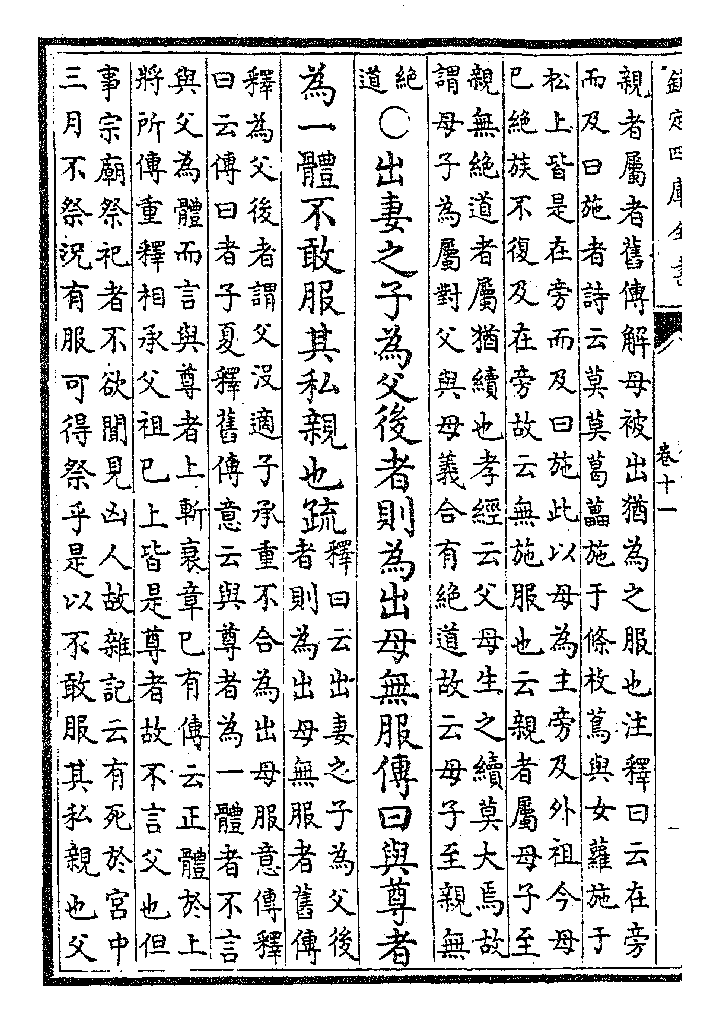 欽定四庫全書
卷十一
親者屬者舊傳解母被出猶為之服也注釋曰云在旁
而及曰施者詩云莫莫葛藟施于條枚蔦與女蘿施于
松上皆是在旁而及曰施此以母為主旁及外祖今母
已絶族不復及在旁故云無施服也云親者屬母子至
親無絶道者屬猶續也孝經云父母生之續莫大焉故
謂母子為屬對父與母義合有絶道故云母子至親無
絶
道
○出妻之子為父後者則為出母無服傳曰與尊者
為一體不敢服其私親也疏
釋曰云出妻之子為父後
者則為出母無服者舊傳
釋為父後者謂父没適子承重不合為出母服意傳釋
曰云傳曰者子夏釋舊傳意云與尊者為一體者不言
與父為體而言與尊者上斬衰章已有傳云正體於上
將所傳重釋相承父祖已上皆是尊者故不言父也但
事宗廟祭祀者不欲聞見凶人故雜記云有死於宮中
三月不祭況有服可得祭乎是以不敢服其私親也父